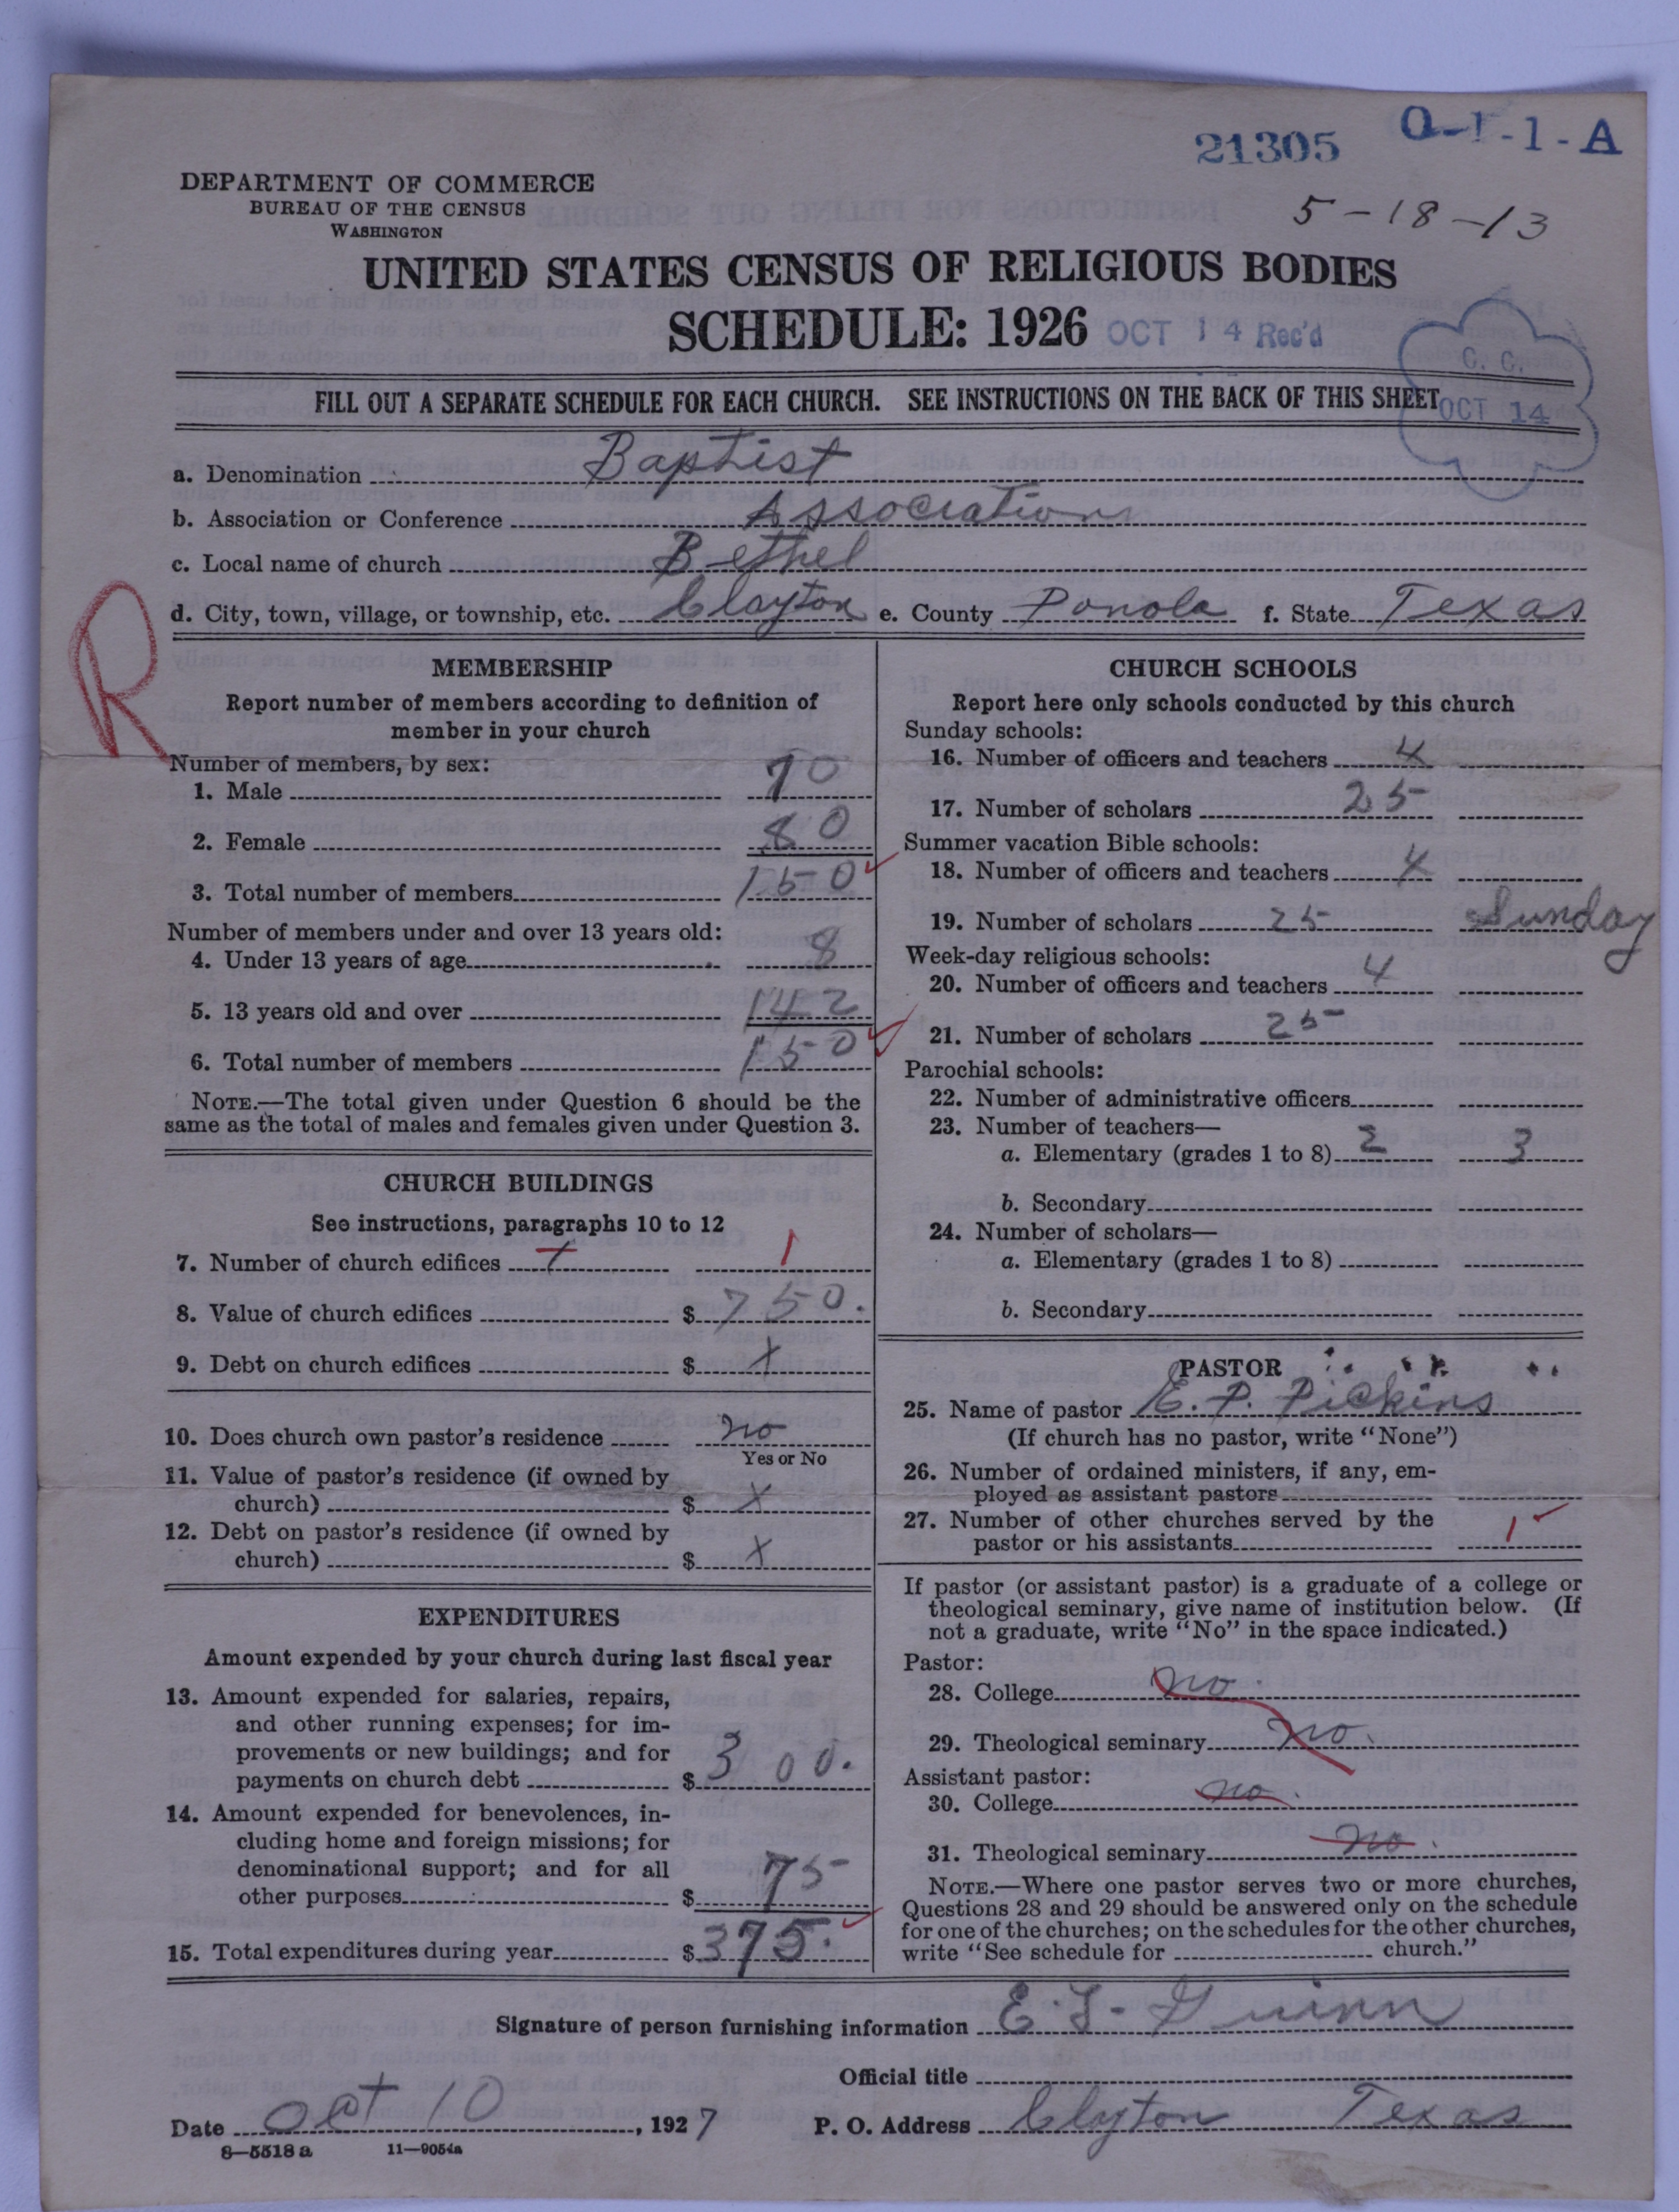 21305 O-1-1-A
DEPARTMENT OF COMMERCE
BUREAU OF THE CENSUS
WASHINGTON
5-18-13
UNITED STATES CENSUS OF RELIGIOUS BODIES
SCHEDULE: 1926 OCT 14 Rec'd
C. C.
OCT 14
FILL OUT A SEPARATE SCHEDULE FOR EACH CHURCH. SEE INSTRUCTIONS ON THE BACK OF THIS SHEET
a. Denomination Baptist
b. Association or Conference Association
c. Local name of church Bethel
d. City, town, village, or township, etc. Clayton e. County Panola f. State Texas
R
MEMBERSHIP
Report number of members according to definition of
member in your church
Number of members, by sex:
1. Male 70
2. Female 80
3. Total number of members 150
Number of members under and over 13 years old:
4. Under 13 years of age 8
5. 13 years old and over 142
6. Total number of members 150
NOTE.—The total given under Question 6 should be the
same as the total of males and females given under Question 3.
CHURCH BUILDINGS
See instructions, paragraphs 10 to 12
7. Number of church edifices 1 1
8. Value of church edifices $ 750.
9. Debt on church edifices $ X
10. Does church own pastor's residence no
Yes or No
11. Value of pastor's residence (if owned by
church) $ X
12. Debt on pastor's residence (if owned by
church) $ X
EXPENDITURES
Amount expended by your church during last fiscal year
13. Amount expended for salaries, repairs,
and other running expenses; for im-
provements or new buildings; and for
payments on church debt $ 300.
14. Amount expended for benevolences, in-
cluding home and foreign missions; for
denominational support; and for all
other purposes $ 75
15. Total expenditures during year $ 375.
CHURCH SCHOOLS
Report here only schools conducted by this church
Sunday schools:
16. Number of officers and teachers 4
17. Number of scholars 25
Summer vacation Bible schools:
18. Number of officers and teachers 4
19. Number of scholars 25 Sunday
Week-day religious schools:
20. Number of officers and teachers 4
21. Number of scholars 25
Parochial schools:
22. Number of administrative officers
23. Number of teachers—
a. Elementary (grades 1 to 8) 2 3
b. Secondary
24. Number of scholars—
a. Elementary (grades 1 to 8)
b. Secondary
PASTOR
25. Name of pastor E. P. Pickins
(If church has no pastor, write "None")
26. Number of ordained ministers, if any, em-
ployed as assistant pastors
27. Number of other churches served by the
pastor or his assistants 1
If pastor (or assistant pastor) is a graduate of a college or
theological seminary, give name of institution below. (If
not a graduate, write "No" in the space indicated.)
Pastor:
28. College no.
29. Theological seminary no.
Assistant pastor:
30. College no.
31. Theological seminary no.
NOTE.—Where one pastor serves two or more churches,
Questions 28 and 29 should be answered only on the schedule
for one of the churches; on the schedules for the other churches,
write "See schedule for church."
Signature of person furnishing information E. L. Guinn
Official title
Date Oct 10, 1927 P. O. Address Clayton Texas
8—5518a 11—9054a